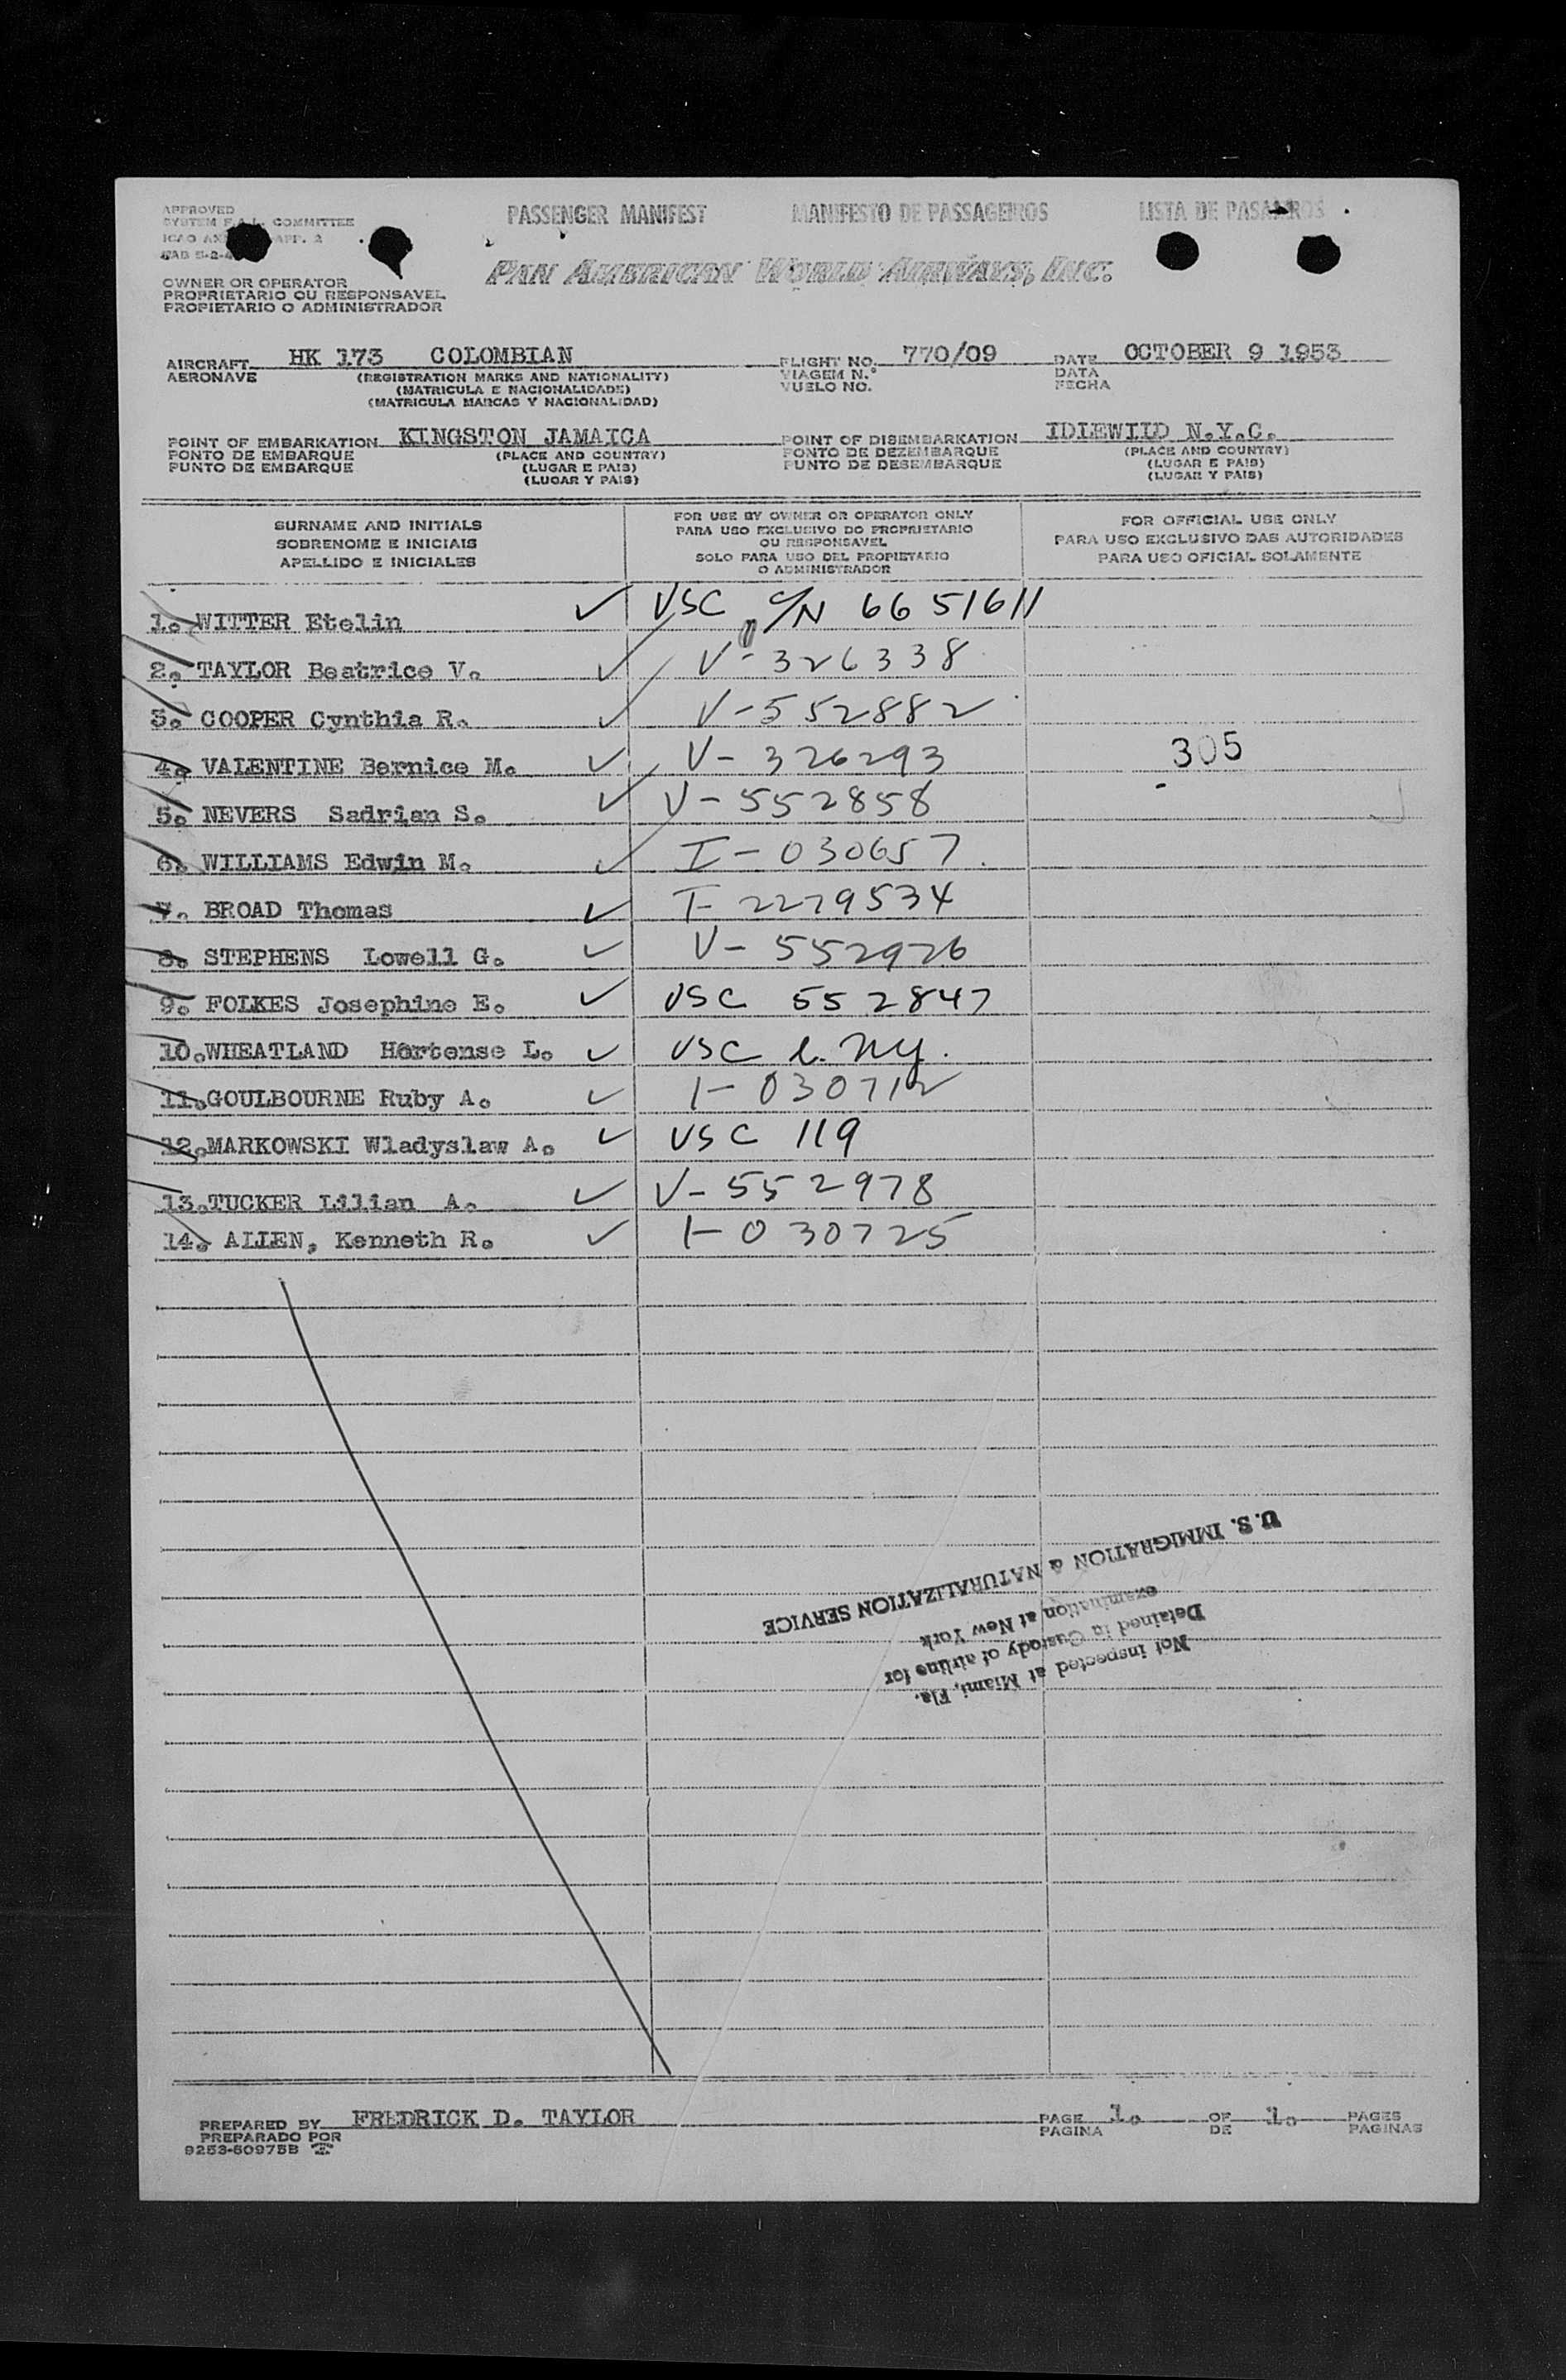 APPROVED
SYSTEM F.A.L. COMMITTEE
ICAO APP. 2
PASSENGER MANIFEST MANIFESTO DE PASSAGEIROS LISTA DE PASAJEROS
PAN AMERICAN WORLD AIRWAYS, INC.
OWNER OR OPERATOR
PROPRIETARIO OU RESPONSAVEL
PROPIETARIO O ADMINISTRADOR
AIRCRAFT HK 173 COLOMBIAN FLIGHT NO. 770/09 DATE OCTOBER 9 1953
AERONAVE (REGISTRATION MARKS AND NATIONALITY) VIAGEM N.° DATA
(MATRICULA E NACIONALIDADE) VUELO NO. FECHA
(MATRICULA MARCAS Y NACIONALIDAD)
POINT OF EMBARKATION KINGSTON JAMAICA POINT OF DISEMBARKATION IDLEWILD N.Y.C.
PONTO DE EMBARQUE (PLACE AND COUNTRY) PONTO DE DEZEMBARQUE (PLACE AND COUNTRY)
PUNTO DE EMBARQUE (LUGAR E PAIS) PUNTO DE DESEMBARQUE (LUGAR E PAIS)
(LUGAR Y PAIS) (LUGAR Y PAIS)
SURNAME AND INITIALS
SOBRENOME E INICIAIS
APELLIDO E INICIALES
FOR USE BY OWNER OR OPERATOR ONLY
PARA USO EXCLUSIVO DO PROPRIETARIO
OU RESPONSAVEL
SOLO PARA USO DEL PROPIETARIO
O ADMINISTRADOR
FOR OFFICIAL USE ONLY
PARA USO EXCLUSIVO DAS AUTORIDADES
PARA USO OFICIAL SOLAMENTE
1. WITTER Etelin ✓ USC C/N 6651611
2. TAYLOR Beatrice V. ✓ V-326338
3. COOPER Cynthia R. ✓ V-552882
4. VALENTINE Bernice M. ✓ V-326293 305
5. NEVERS Sadrian S. ✓ V-552858
6. WILLIAMS Edwin M. ✓ I-030657
7. BROAD Thomas ✓ T-2279534
8. STEPHENS Lowell G. ✓ V-552926
9. FOLKES Josephine E. ✓ USC 552847
10. WHEATLAND Hortense L. ✓ USC NY.
11. GOULBOURNE Ruby A. ✓ I-030712
12. MARKOWSKI Wladyslaw A. ✓ USC 119
13. TUCKER Lilian A. ✓ V-552978
14. ALLEN, Kenneth R. ✓ I-030725
U.S. IMMIGRATION & NATURALIZATION SERVICE
Not inspected at Miami, Fla.
Detained in Custody of airline for
examination at New York
PREPARED BY FREDRICK D. TAYLOR PAGE 1. OF 1. PAGES
PREPARADO POR PAGINA DE PAGINAS
9253-60975B